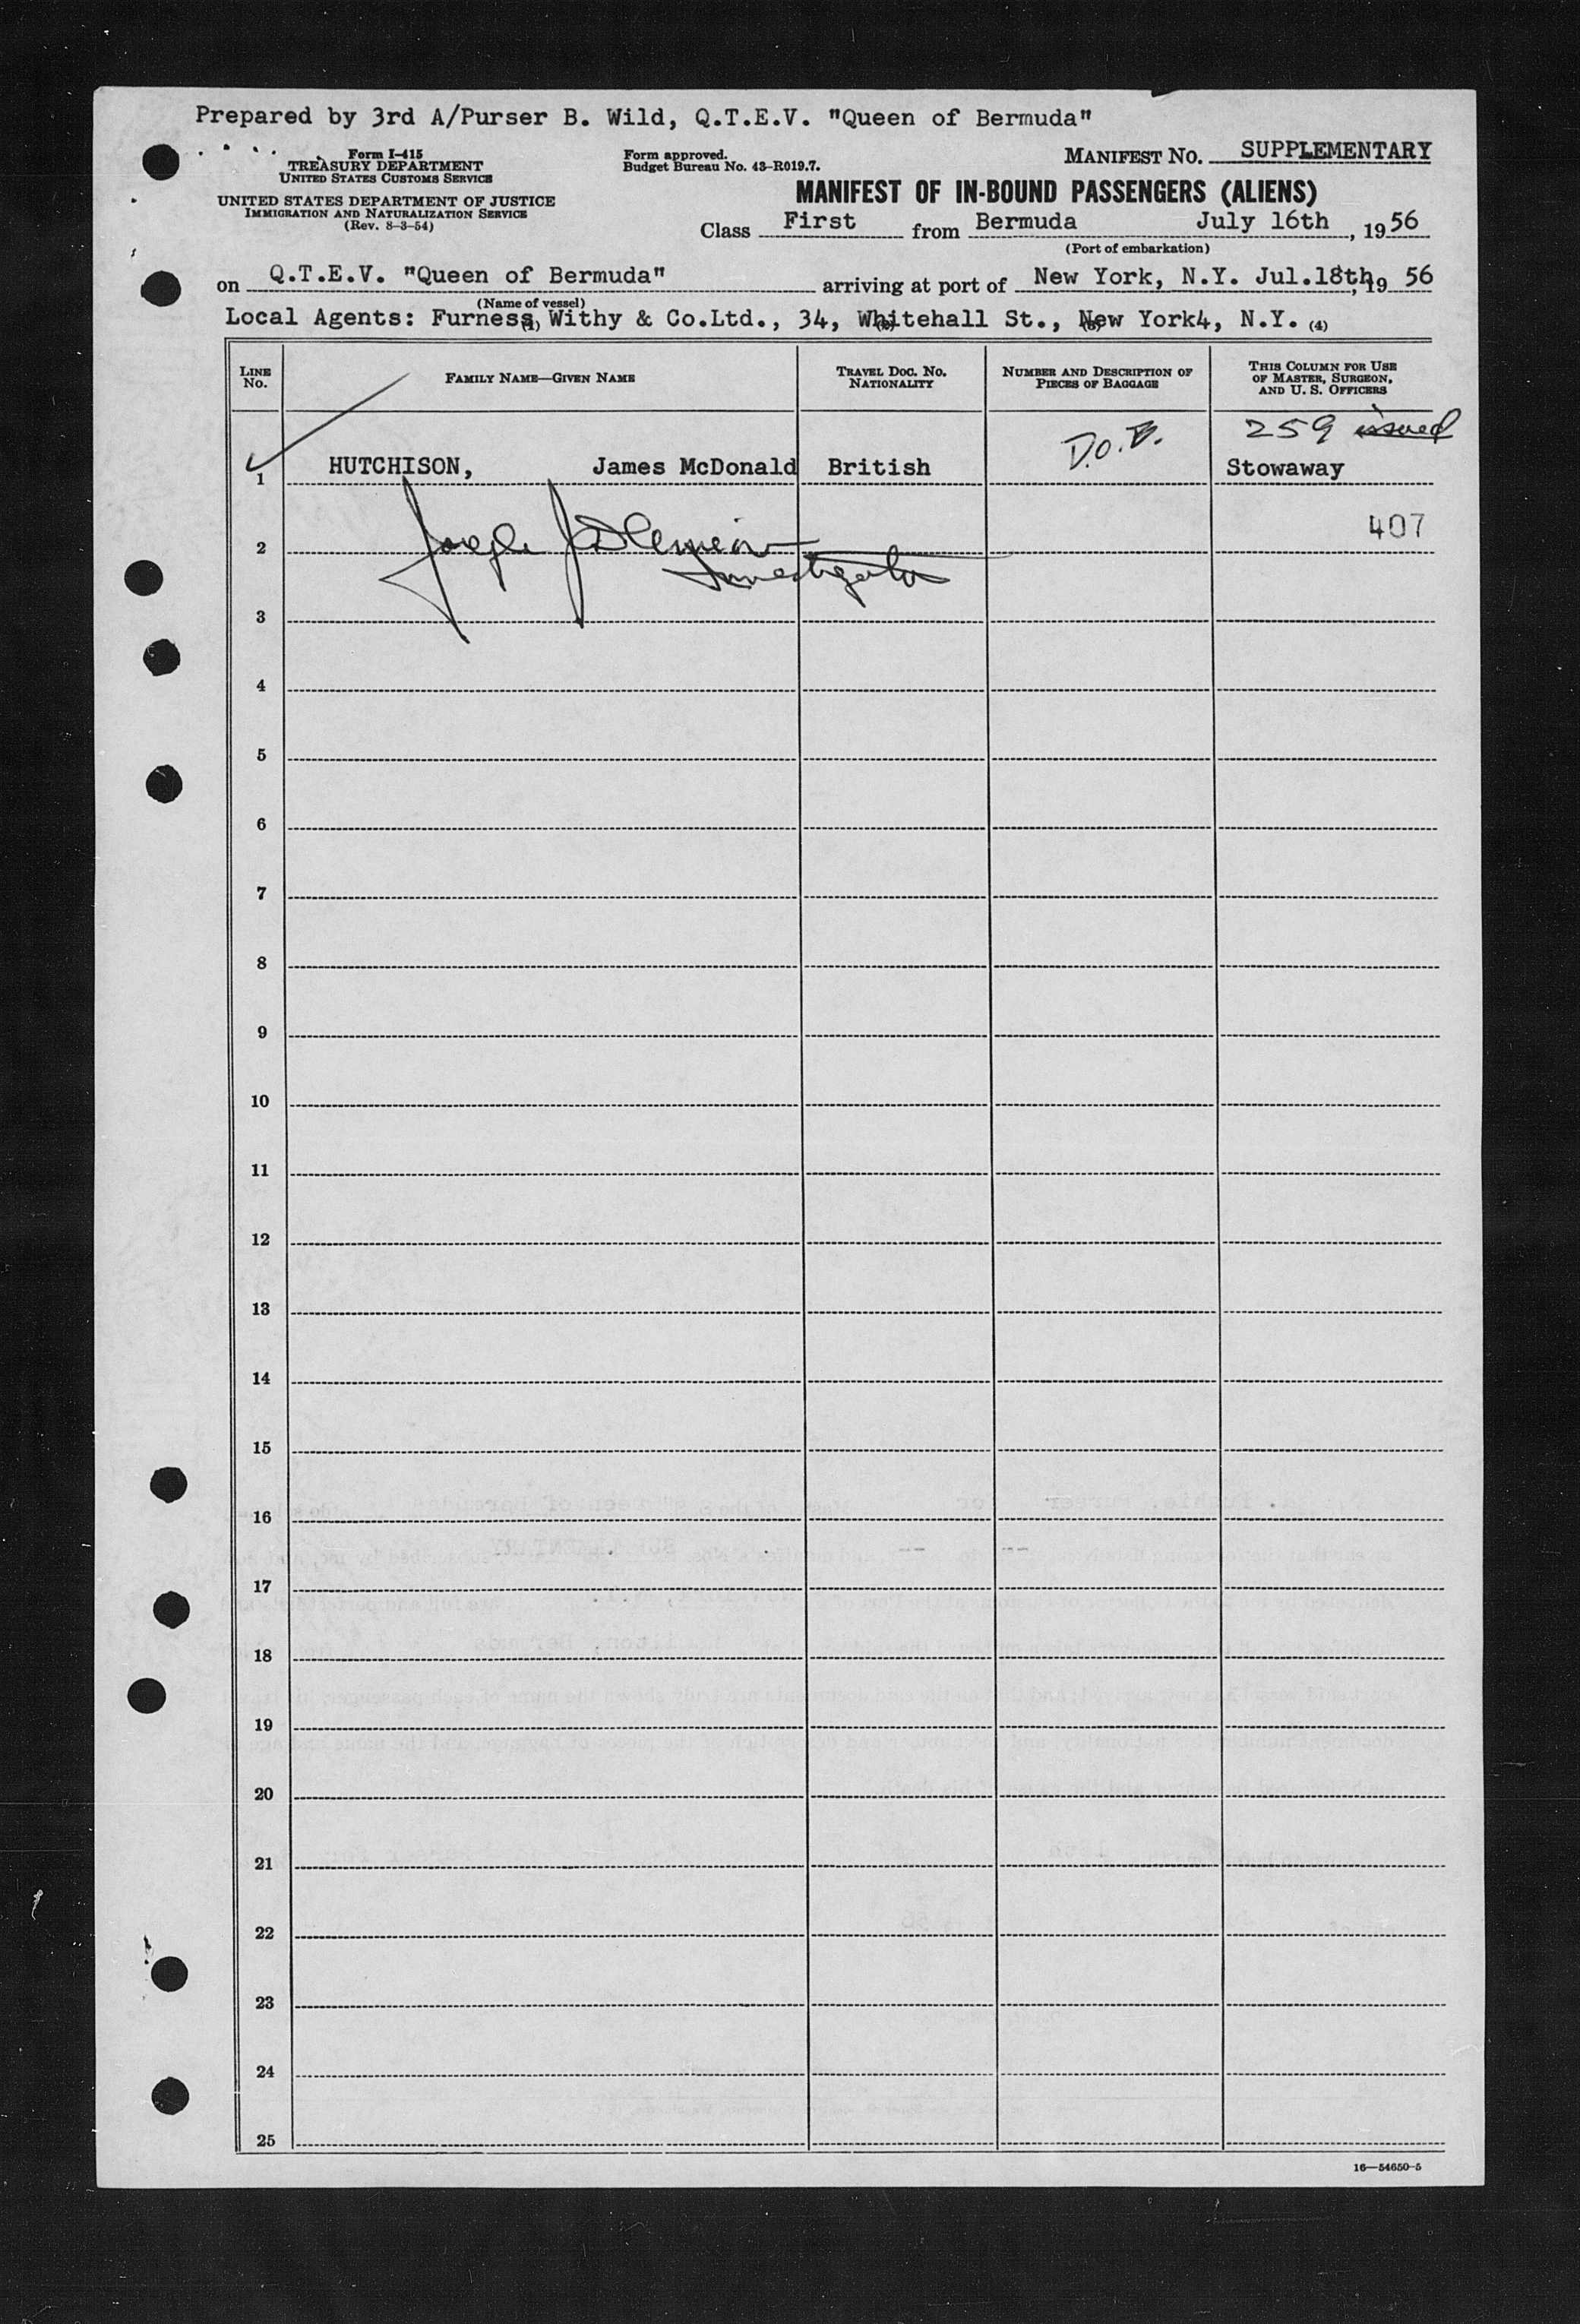 Prepared by 3rd A/Purser B. Wild, Q.T.E.V. "Queen of Bermuda"
Form I-415
TREASURY DEPARTMENT
UNITED STATES CUSTOMS SERVICE
UNITED STATES DEPARTMENT OF JUSTICE
IMMIGRATION AND NATURALIZATION SERVICE
(Rev. 8-3-54)
Form approved.
Budget Bureau No. 43-R019.7.
MANIFEST NO. SUPPLEMENTARY
MANIFEST OF IN-BOUND PASSENGERS (ALIENS)
Class First from Bermuda July 16th, 1956
(Port of embarkation)
on Q.T.E.V. "Queen of Bermuda" arriving at port of New York, N.Y. Jul.18th, 19 56
(Name of vessel)
Local Agents: Furness Withy & Co.Ltd., 34, Whitehall St., New York4, N.Y. (4)
LINE NO. FAMILY NAME—GIVEN NAME TRAVEL DOC. NO. NATIONALITY NUMBER AND DESCRIPTION OF PIECES OF BAGGAGE THIS COLUMN FOR USE OF MASTER, SURGEON, AND U. S. OFFICERS
259 issued
1 HUTCHISON, James McDonald British D.O.B. Stowaway
2 Joseph 407
Investigator
3
4
5
6
7
8
9
10
11
12
13
14
15
16
17
18
19
20
21
22
23
24
25
16—54650-5